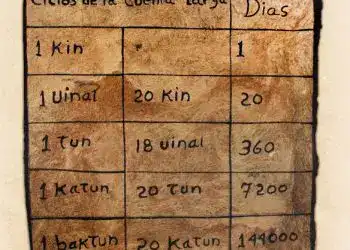 Ciclos de la Cuenta Larga Dias
1 Kin 1
1 Uinal 20 Kin 20
1 Tun 18 uinal 360
1 Katun 20 Tun 7200
1 baktun 20 Katun 144000